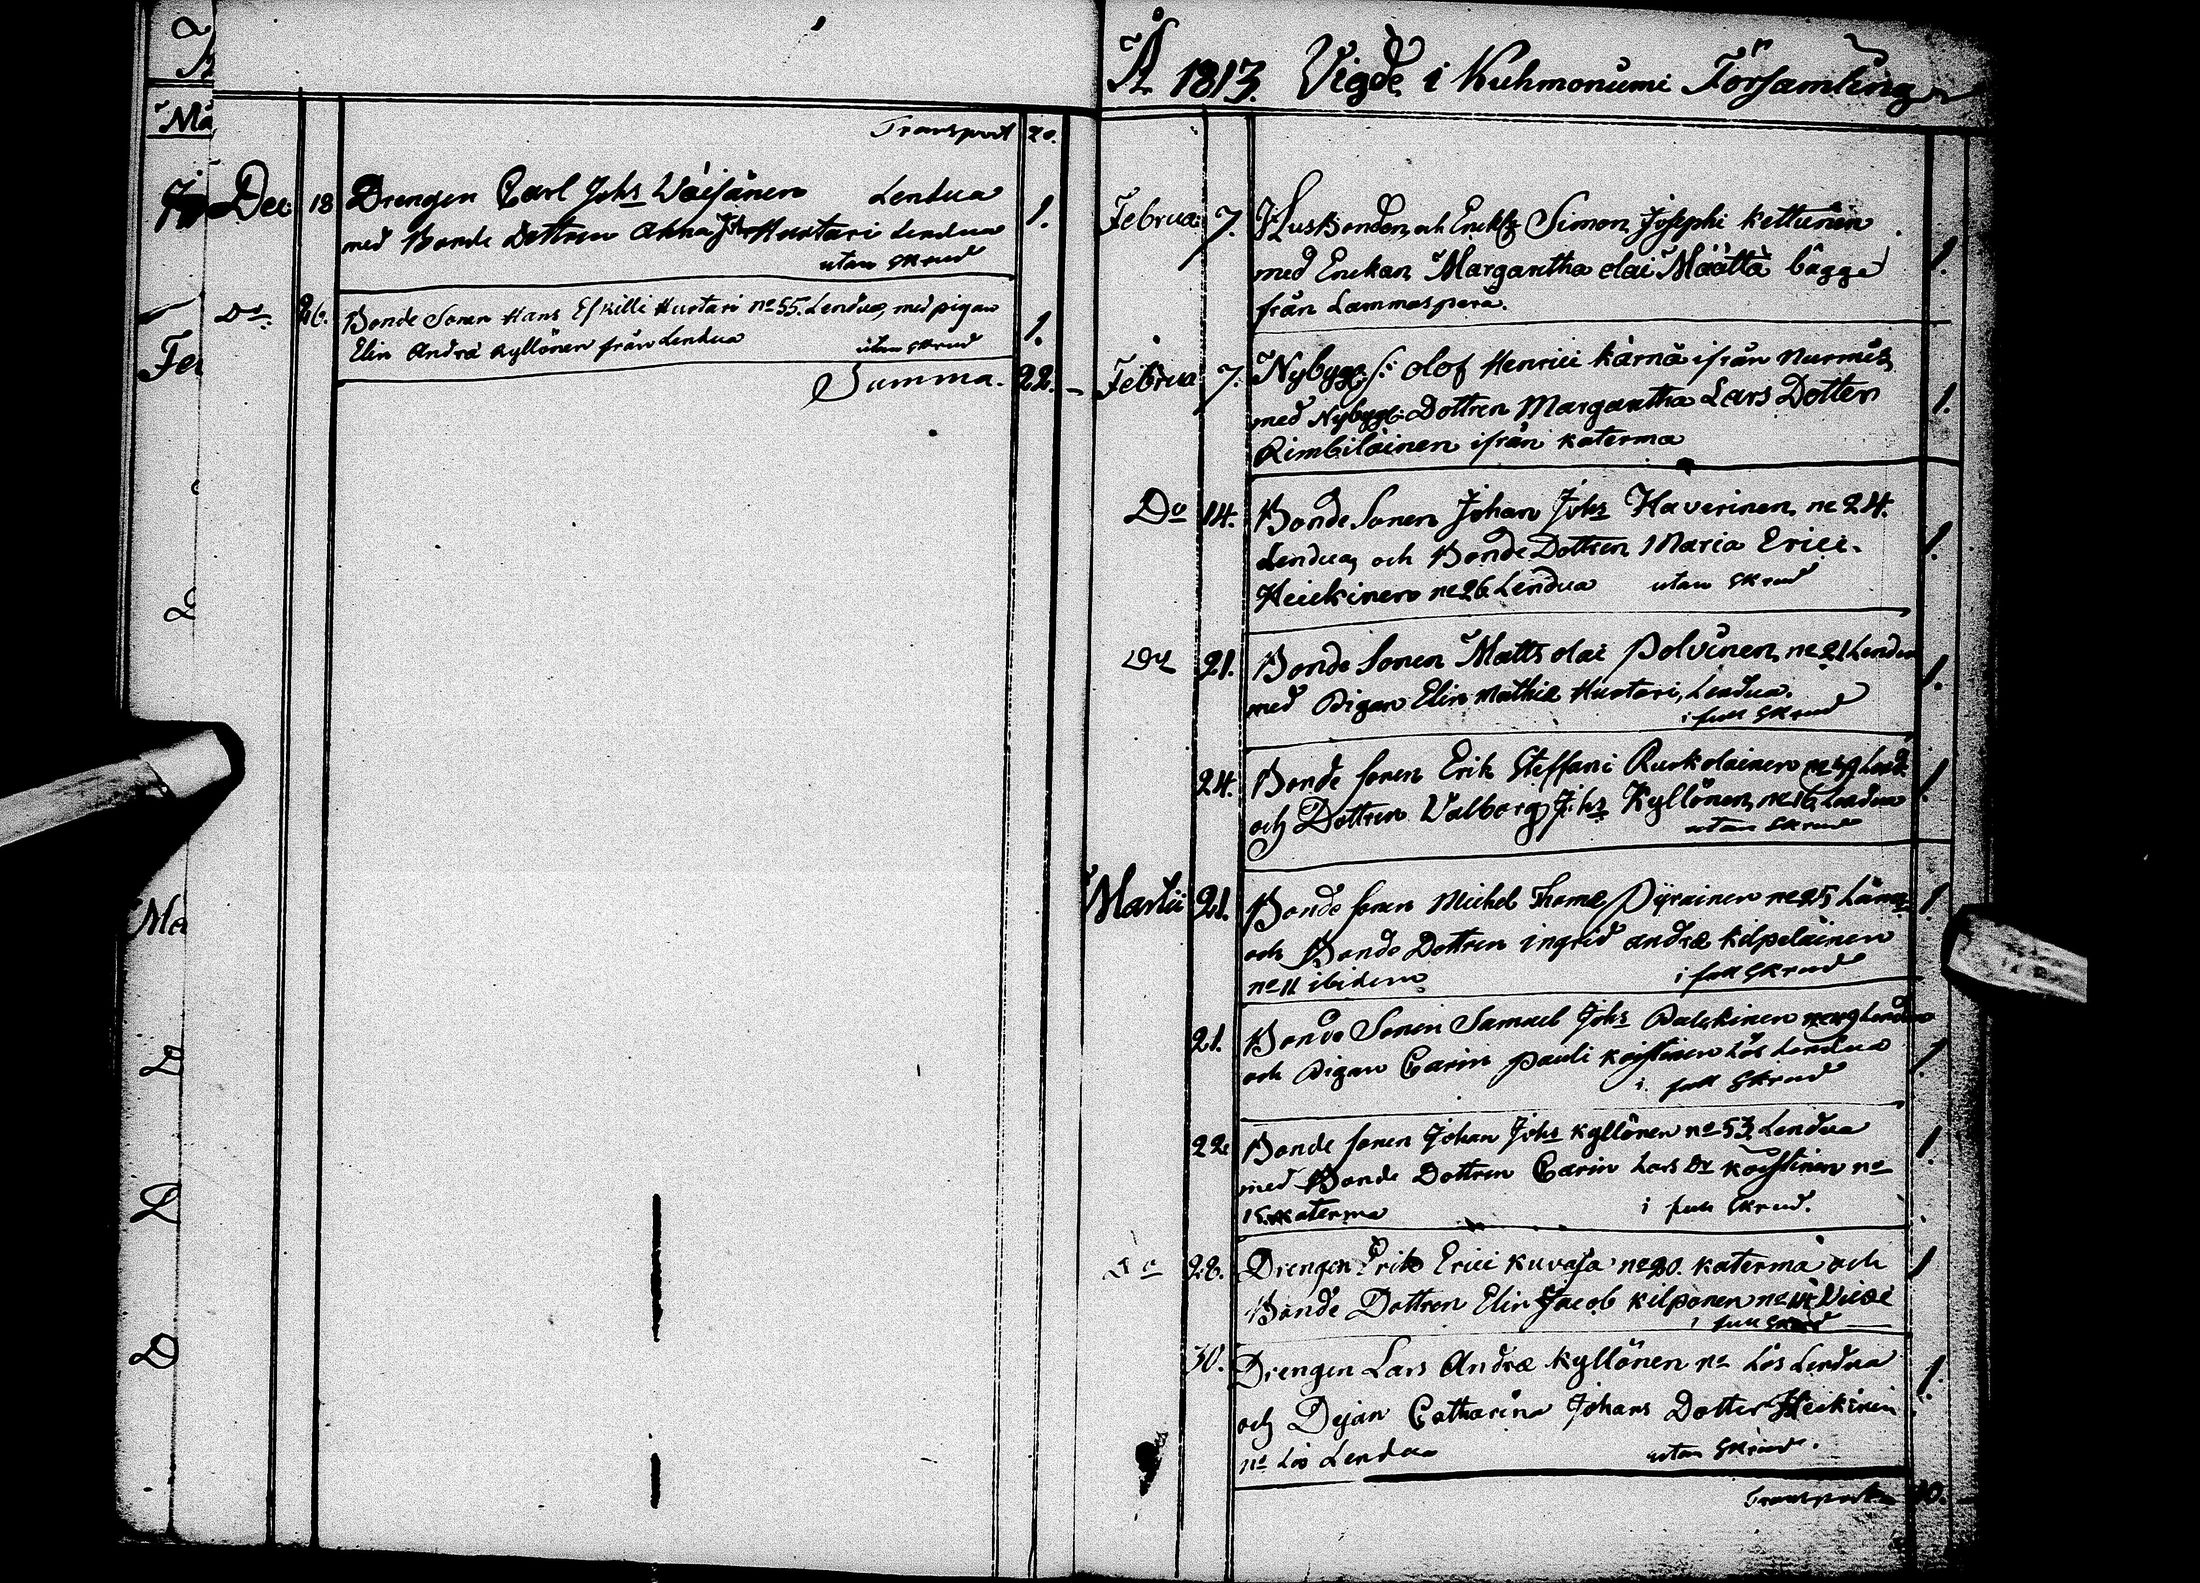 Transport 20.
Dec: 18 Drengen Carl Johs Väisänen Lendua 1.
med Bonde Dottren Anna Johs Huotari Lendua
utan skrud
Do. 26. Bonde Sonen Hans Eskilli Huotari no 55. Lendua, med pigan 1.
Elin Andræ Kyllönen från Lendua utan skrud
Summa. 22.
År 1813. Vigde i Kuhmoniemi Församling
Februa: 7. Husbonden och Enckl: Simon Josephi Kettunen 1.
med Enckan Margaretha Olai Määttä bägge
från Lammaspera.
Februa 7. Nybygg: s: Olof Henrici Kärnä ifrån Nurmis
med Nybygg: Dottren Margaretha Lars Dotter 1.
Rimbiläinen ifrån Katerma
Do 14. Bonde Sonen Johan Johs Haverinen no 24.
Lendua, och Bonde Dottren Maria Erici 1.
Heickinen no 26 Lendua utan skrud
Do 21. Bonde Sonen Matts Olai Polvinen, no 21 Lendua 1.
med Pigan Elin Mathiæ Huotari, Lendua.
i full skrud
24. Bonde sonen Erik Steffani Ruokolainen no 49 Lend: 1.
och Dottren Valborg Johs Kyllönen, no 16 Lendua
utan skrud
Martii 21. Bonde sonen Michel Thomæ Pyyrainen no 25 1.
och Bonde Dottren Ingrid Andræ Kilpeläinen
no 11 ibidem i full skrud
21. Bonde Sonen Samuel Johs Lendua
och Pigan Carin Pauli Koistinen Lös Lendua 1.
i full skrud
22. Bonde sonen Johan Johs Kyllönen no 53. Lendua 1.
med Bonde Dottren Carin Lars Dr Koistinen no
15. Katerma i full skrud.
Do 28. Drengen Erik Erici Kuvaja no 20. Katerma och 1
Bonde Dottren Elin Jacob Kilponen no
i full skrud
30. Drengen Lars Andræ Kyllönen no Lös Lendua 1.
och Dejan Catharina Johans Dotter Heikinen
no Lös Lendua utan skrud.
Transport 10.